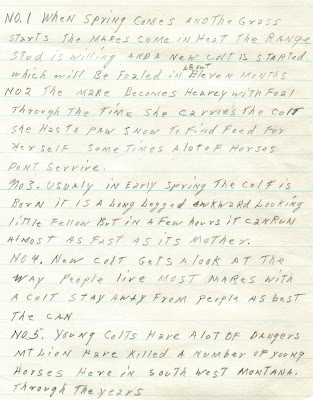 NO.1 WHEN SPRING COMES AND THE GRASS
STARTS THE MARES COME IN HEAT THE RANGE
STUD IS WILLING AND A NEW COLT IS STARTED
about
WHICH WILL BE FOALED IN ELEVEN MONTHS
NO2 THE MARE BECOMES HEAREY WITH FOAL
THROUGH THE TIME SHE CARRIES THE COLT
SHE HAS TO PAW SNOW TO FIND FEED FOR
HERSELF SOME TIMES ALOT OF HORSES
DONT SERVIRE.
NO3. USUALY IN EARLY SPRING THE COLT IS
BORN IT IS A LONG LEGGED AWKWARD LOOKING
LITTLE FELLOW BUT IN A FEW HOURS IT CAN RUN
ALMOST AS FAST AS ITS MOTHER.
NO4. NEW COLT GETS A LOOK AT THE
WAY PEOPLE LIVE MOST MARES WITH
A COLT STAY AWAY FROM PEOPLE AS BEST
THE CAN
NO.5. YOUNG COLTS HAVE ALOT OF DANGERS
MT LION HAVE KILLED A NUMBER OF YOUNG
HORSES HERE IN SOUTH WEST MONTANA.
THROUGH THE YEARS